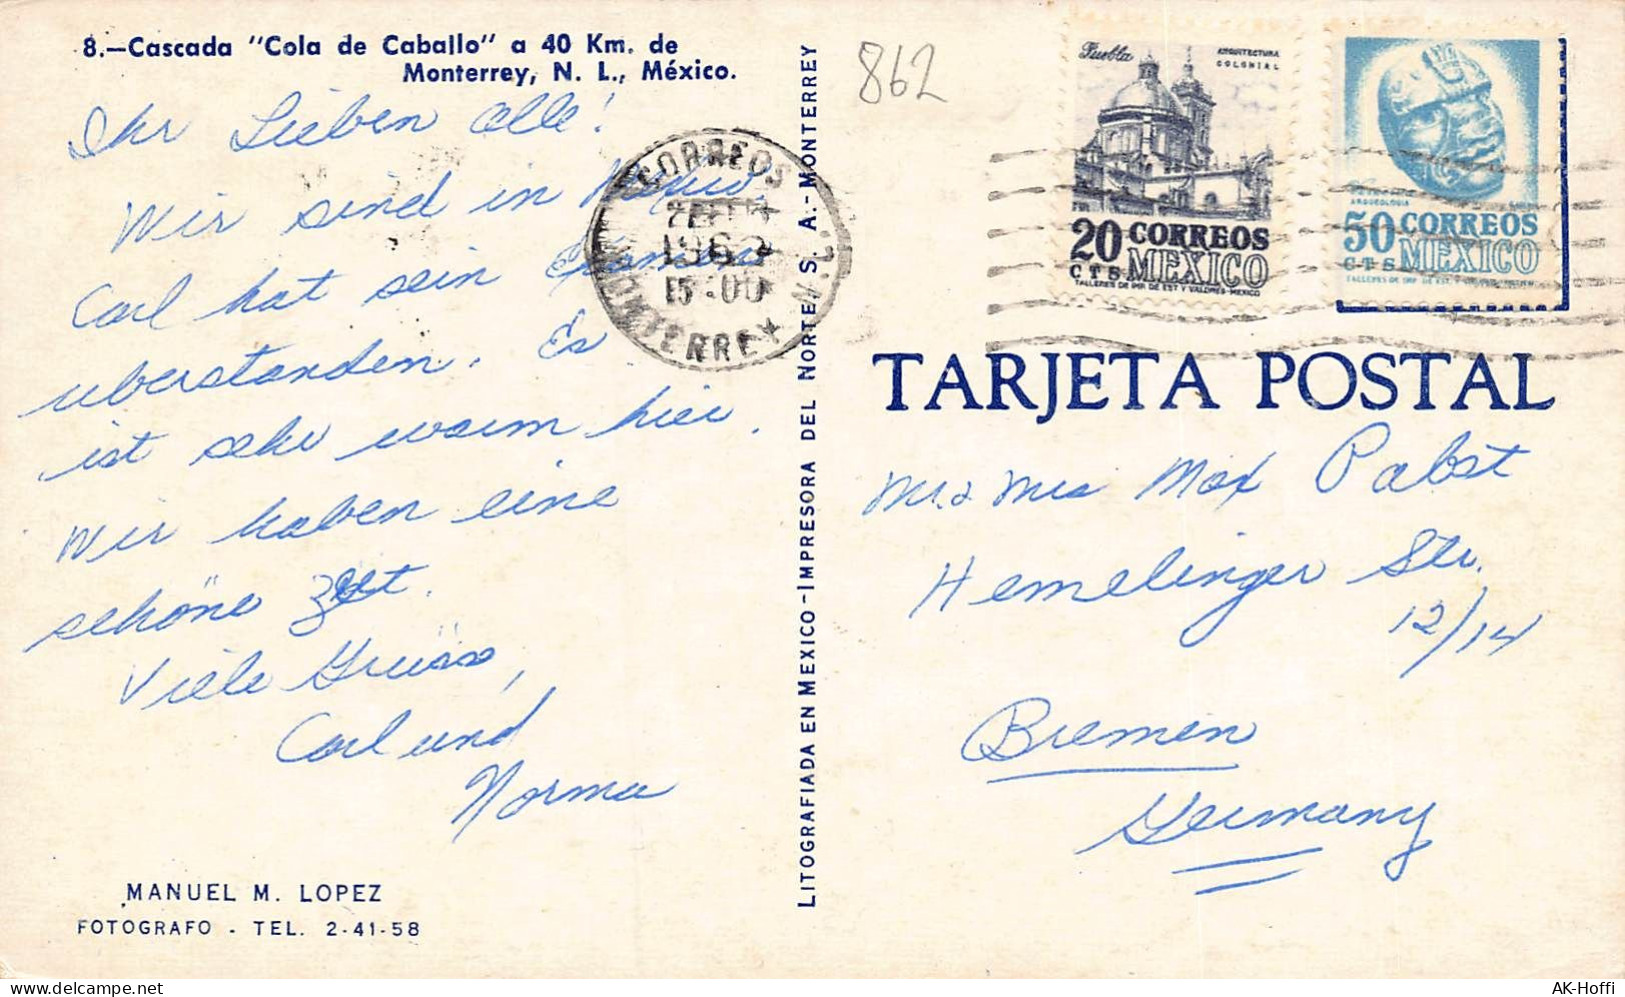 8.—Cascada "Cola de Caballo" a 40 Km. de
Monterrey, N. L., México.
Ihr Lieben alle!
Wir sind in Mexico,
Carl hat sein Examens
uberstanden. Es
ist sehr warm hier.
Wir haben eine
schöne Zeit.
Viele Grüsse,
Carl und
Norma
MANUEL M. LOPEZ
FOTOGRAFO - TEL. 2-41-58
CORREOS
15-00
MONTERREY
LITOGRAFIADA EN MEXICO-IMPRESORA DEL NORTE, S. A.-MONTERREY
862
Puebla
ARQUITECTURA
COLONIAL
20 CORREOS
CTS MEXICO
TALLERES DE IMP. DE EST. Y VALORES-MEXICO
ARQUEOLOGIA
50 CORREOS
CTS MEXICO
TARJETA POSTAL
Mr. & Mrs Max Pabst
Hemelinger Str.
12/14
Bremen
Germany
AK-Hoffi